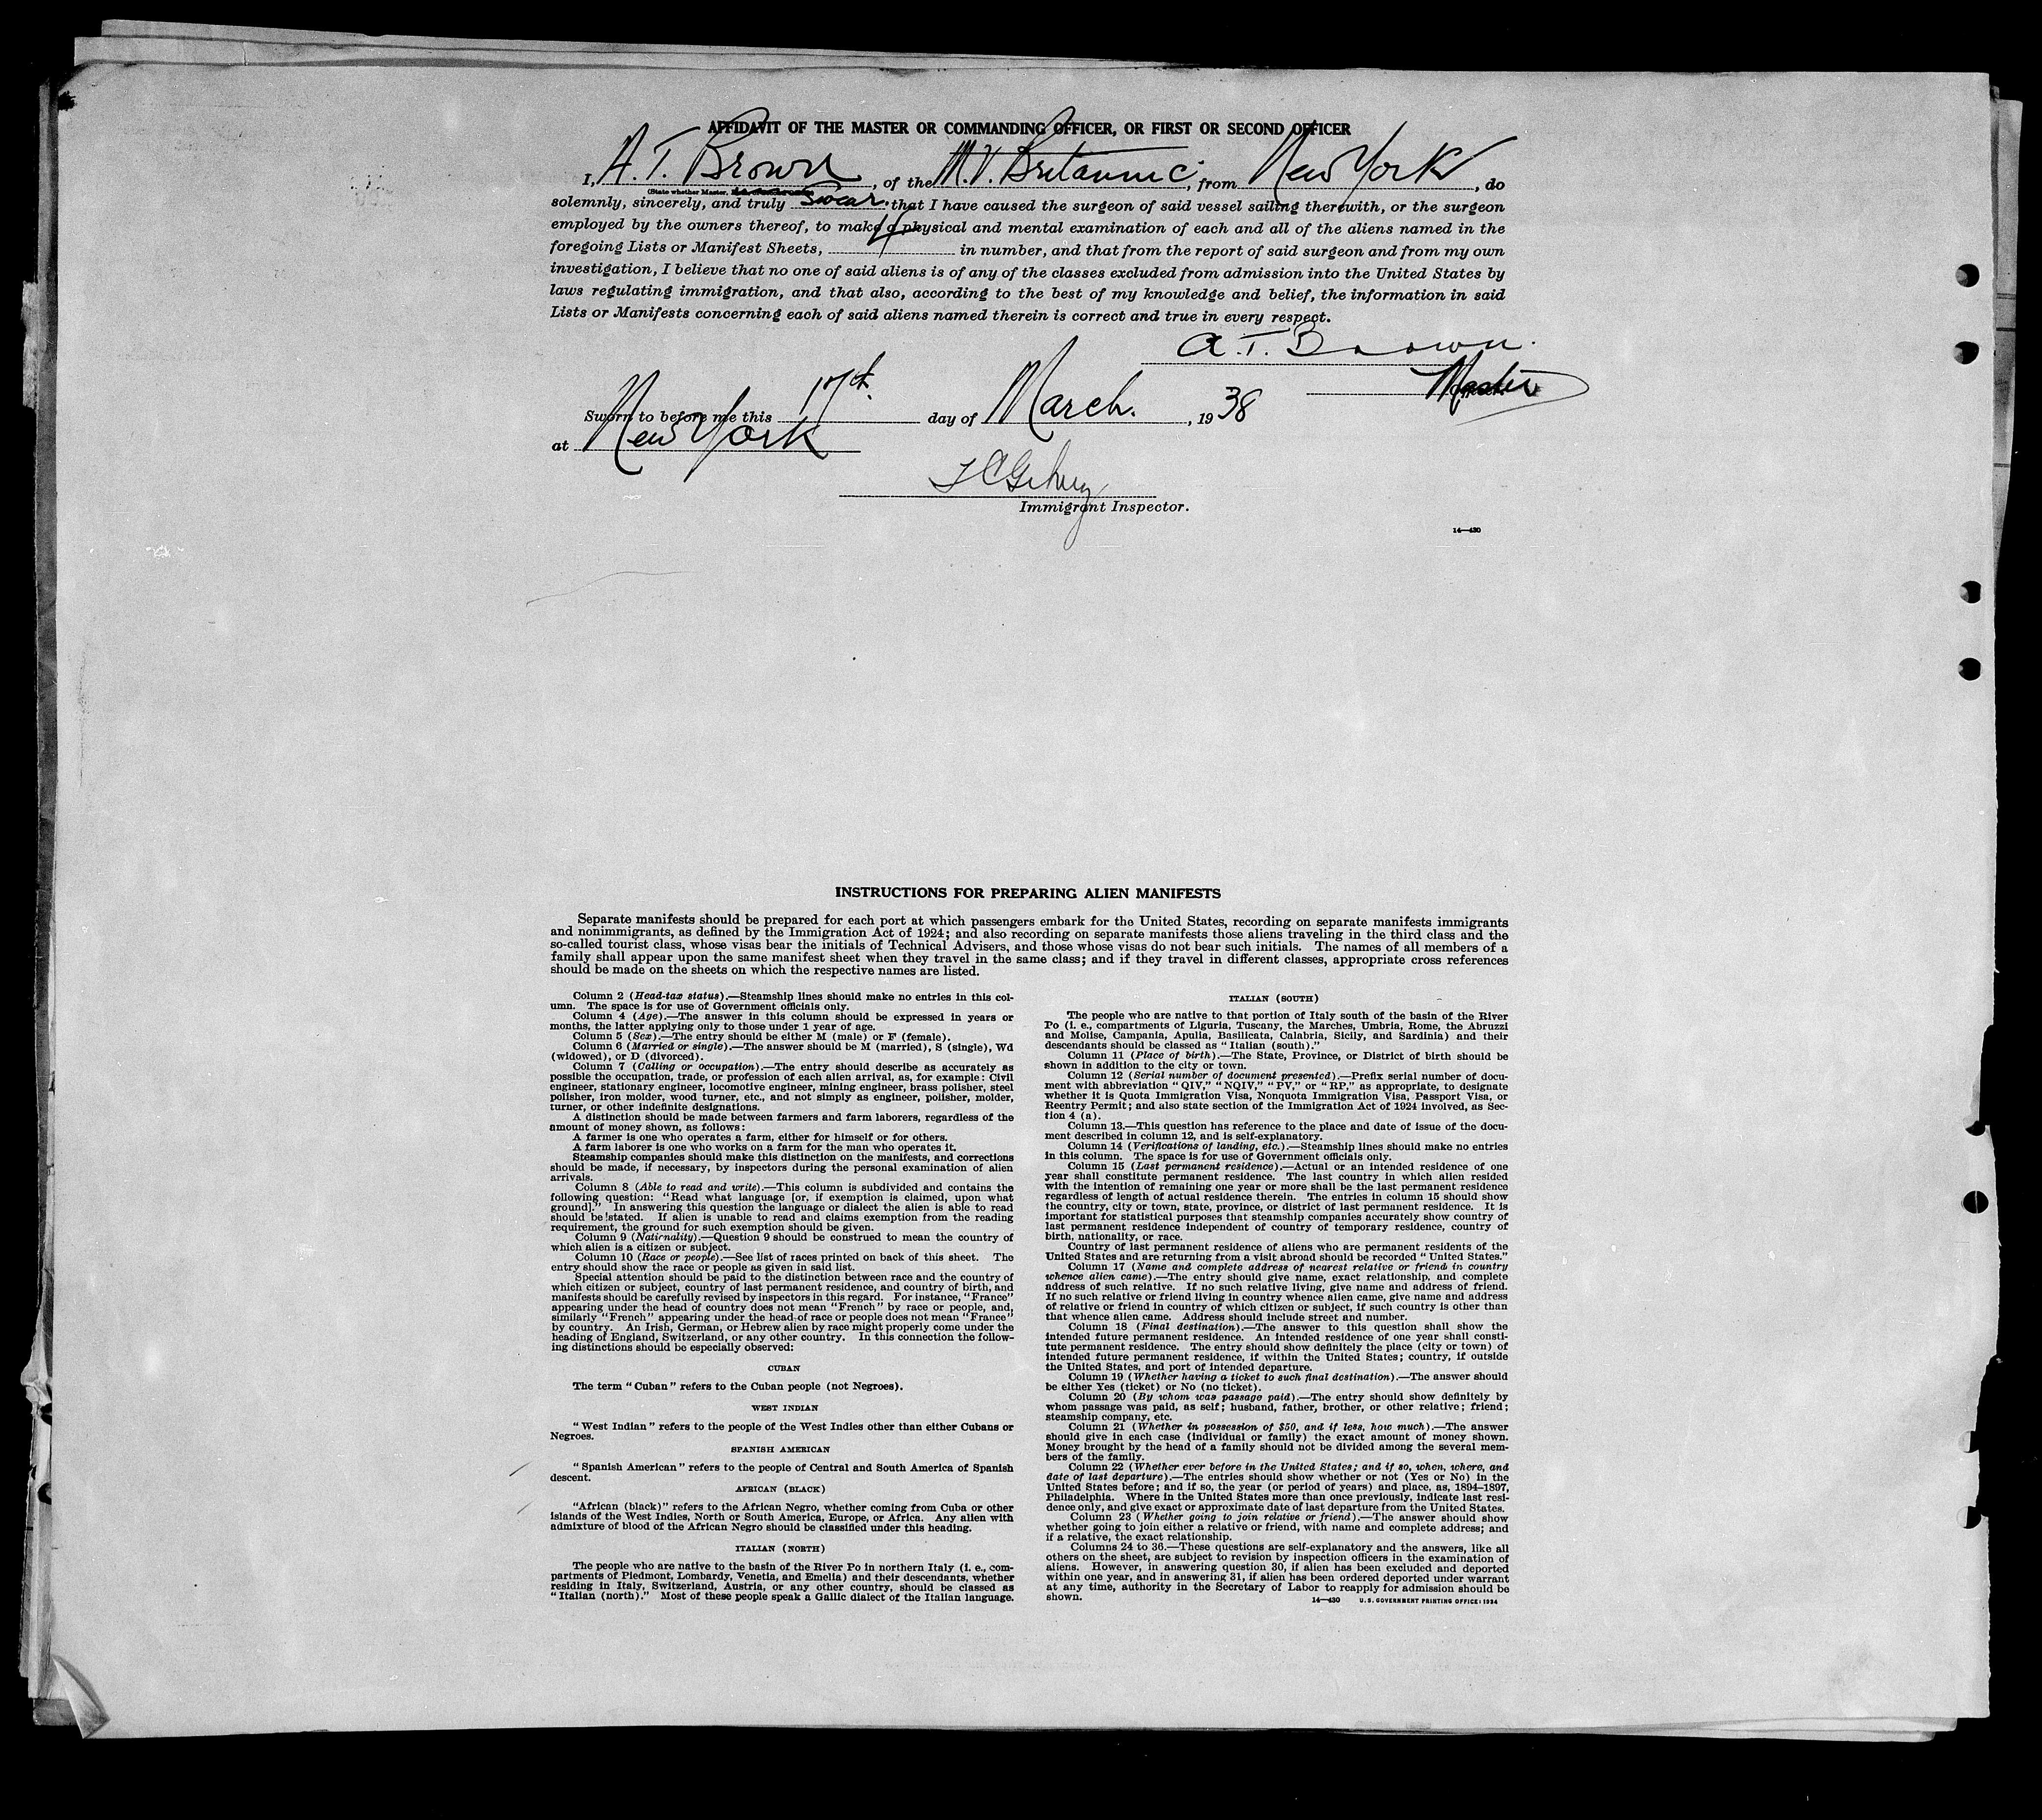 AFFIDAVIT OF THE MASTER OR COMMANDING OFFICER, OR FIRST OR SECOND OFFICER
I, A. T. Brown, of the M. V. Britannic, from New York, do
(State whether Master,
solemnly, sincerely, and truly swear that I have caused the surgeon of said vessel sailing therewith, or the surgeon
employed by the owners thereof, to make a physical and mental examination of each and all of the aliens named in the
foregoing Lists or Manifest Sheets, 4 in number, and that from the report of said surgeon and from my own
investigation, I believe that no one of said aliens is of any of the classes excluded from admission into the United States by
laws regulating immigration, and that also, according to the best of my knowledge and belief, the information in said
Lists or Manifests concerning each of said aliens named therein is correct and true in every respect.
A. T. Brown.
Master
Sworn to before me this 17th day of March, 1938
at New York
Immigrant Inspector.
14—430
INSTRUCTIONS FOR PREPARING ALIEN MANIFESTS
Separate manifests should be prepared for each port at which passengers embark for the United States, recording on separate manifests immigrants
and nonimmigrants, as defined by the Immigration Act of 1924; and also recording on separate manifests those aliens traveling in the third class and the
so-called tourist class, whose visas bear the initials of Technical Advisers, and those whose visas do not bear such initials. The names of all members of a
family shall appear upon the same manifest sheet when they travel in the same class; and if they travel in different classes, appropriate cross references
should be made on the sheets on which the respective names are listed.
Column 2 (Head-tax status).—Steamship lines should make no entries in this col-
umn. The space is for use of Government officials only.
Column 4 (Age).—The answer in this column should be expressed in years or
months, the latter applying only to those under 1 year of age.
Column 5 (Sex).—The entry should be either M (male) or F (female).
Column 6 (Married or single).—The answer should be M (married), S (single), Wd
(widowed), or D (divorced).
Column 7 (Calling or occupation).—The entry should describe as accurately as
possible the occupation, trade, or profession of each alien arrival, as, for example: Civil
engineer, stationary engineer, locomotive engineer, mining engineer, brass polisher, steel
polisher, iron molder, wood turner, etc., and not simply as engineer, polisher, molder,
turner, or other indefinite designations.
A distinction should be made between farmers and farm laborers, regardless of the
amount of money shown, as follows:
A farmer is one who operates a farm, either for himself or for others.
A farm laborer is one who works on a farm for the man who operates it.
Steamship companies should make this distinction on the manifests, and corrections
should be made, if necessary, by inspectors during the personal examination of alien
arrivals.
Column 8 (Able to read and write).—This column is subdivided and contains the
following question: "Read what language [or, if exemption is claimed, upon what
ground]." In answering this question the language or dialect the alien is able to read
should be stated. If alien is unable to read and claims exemption from the reading
requirement, the ground for such exemption should be given.
Column 9 (Nationality).—Question 9 should be construed to mean the country of
which alien is a citizen or subject.
Column 10 (Race or people).—See list of races printed on back of this sheet. The
entry should show the race or people as given in said list.
Special attention should be paid to the distinction between race and the country of
which citizen or subject, country of last permanent residence, and country of birth, and
manifests should be carefully revised by inspectors in this regard. For instance, "France"
appearing under the head of country does not mean "French" by race or people, and,
similarly "French" appearing under the head of race or people does not mean "France"
by country. An Irish, German, or Hebrew alien by race might properly come under the
heading of England, Switzerland, or any other country. In this connection the follow-
ing distinctions should be especially observed:
CUBAN
The term "Cuban" refers to the Cuban people (not Negroes).
WEST INDIAN
"West Indian" refers to the people of the West Indies other than either Cubans or
Negroes.
SPANISH AMERICAN
"Spanish American" refers to the people of Central and South America of Spanish
descent.
AFRICAN (BLACK)
"African (black)" refers to the African Negro, whether coming from Cuba or other
islands of the West Indies, North or South America, Europe, or Africa. Any alien with
admixture of blood of the African Negro should be classified under this heading.
ITALIAN (NORTH)
The people who are native to the basin of the River Po in northern Italy (i. e., com-
partments of Piedmont, Lombardy, Venetia, and Emelia) and their descendants, whether
residing in Italy, Switzerland, Austria, or any other country, should be classed as
"Italian (north)." Most of these people speak a Gallic dialect of the Italian language.
ITALIAN (SOUTH)
The people who are native to that portion of Italy south of the basin of the River
Po (i. e., compartments of Liguria, Tuscany, the Marches, Umbria, Rome, the Abruzzi
and Molise, Campania, Apulia, Basilicata, Calabria, Sicily, and Sardinia) and their
descendants should be classed as "Italian (south)."
Column 11 (Place of birth).—The State, Province, or District of birth should be
shown in addition to the city or town.
Column 12 (Serial number of document presented).—Prefix serial number of docu-
ment with abbreviation "QIV," "NQIV," "PV," or "RP," as appropriate, to designate
whether it is Quota Immigration Visa, Nonquota Immigration Visa, Passport Visa, or
Reentry Permit; and also state section of the Immigration Act of 1924 involved, as Sec-
tion 4 (a).
Column 13.—This question has reference to the place and date of issue of the docu-
ment described in column 12, and is self-explanatory.
Column 14 (Verifications of landing, etc.).—Steamship lines should make no entries
in this column. The space is for use of Government officials only.
Column 15 (Last permanent residence).—Actual or an intended residence of one
year shall constitute permanent residence. The last country in which alien resided
with the intention of remaining one year or more shall be the last permanent residence
regardless of length of actual residence therein. The entries in column 15 should show
the country, city or town, state, province, or district of last permanent residence. It is
important for statistical purposes that steamship companies accurately show country of
last permanent residence independent of country of temporary residence, country of
birth, nationality, or race.
Country of last permanent residence of aliens who are permanent residents of the
United States and are returning from a visit abroad should be recorded "United States."
Column 17 (Name and complete address of nearest relative or friend in country
whence alien came).—The entry should give name, exact relationship, and complete
address of such relative. If no such relative living, give name and address of friend.
If no such relative or friend living in country whence alien came, give name and address
of relative or friend in country of which citizen or subject, if such country is other than
that whence alien came. Address should include street and number.
Column 18 (Final destination).—The answer to this question shall show the
intended future permanent residence. An intended residence of one year shall consti-
tute permanent residence. The entry should show definitely the place (city or town) of
intended future permanent residence, if within the United States; country, if outside
the United States, and port of intended departure.
Column 19 (Whether having a ticket to such final destination).—The answer should
be either Yes (ticket) or No (no ticket).
Column 20 (By whom was passage paid).—The entry should show definitely by
whom passage was paid, as self; husband, father, brother, or other relative; friend;
steamship company, etc.
Column 21 (Whether in possession of $50, and if less, how much).—The answer
should give in each case (individual or family) the exact amount of money shown.
Money brought by the head of a family should not be divided among the several mem-
bers of the family.
Column 22 (Whether ever before in the United States; and if so, when, where, and
date of last departure).—The entries should show whether or not (Yes or No) in the
United States before; and if so, the year (or period of years) and place, as, 1894–1897,
Philadelphia. Where in the United States more than once previously, indicate last resi-
dence only, and give exact or approximate date of last departure from the United States.
Column 23 (Whether going to join relative or friend).—The answer should show
whether going to join either a relative or friend, with name and complete address; and
if a relative, the exact relationship.
Columns 24 to 36.—These questions are self-explanatory and the answers, like all
others on the sheet, are subject to revision by inspection officers in the examination of
aliens. However, in answering question 30, if alien has been excluded and deported
within one year, and in answering 31, if alien has been ordered deported under warrant
at any time, authority in the Secretary of Labor to reapply for admission should be
shown.
14—430 U. S. GOVERNMENT PRINTING OFFICE: 1934